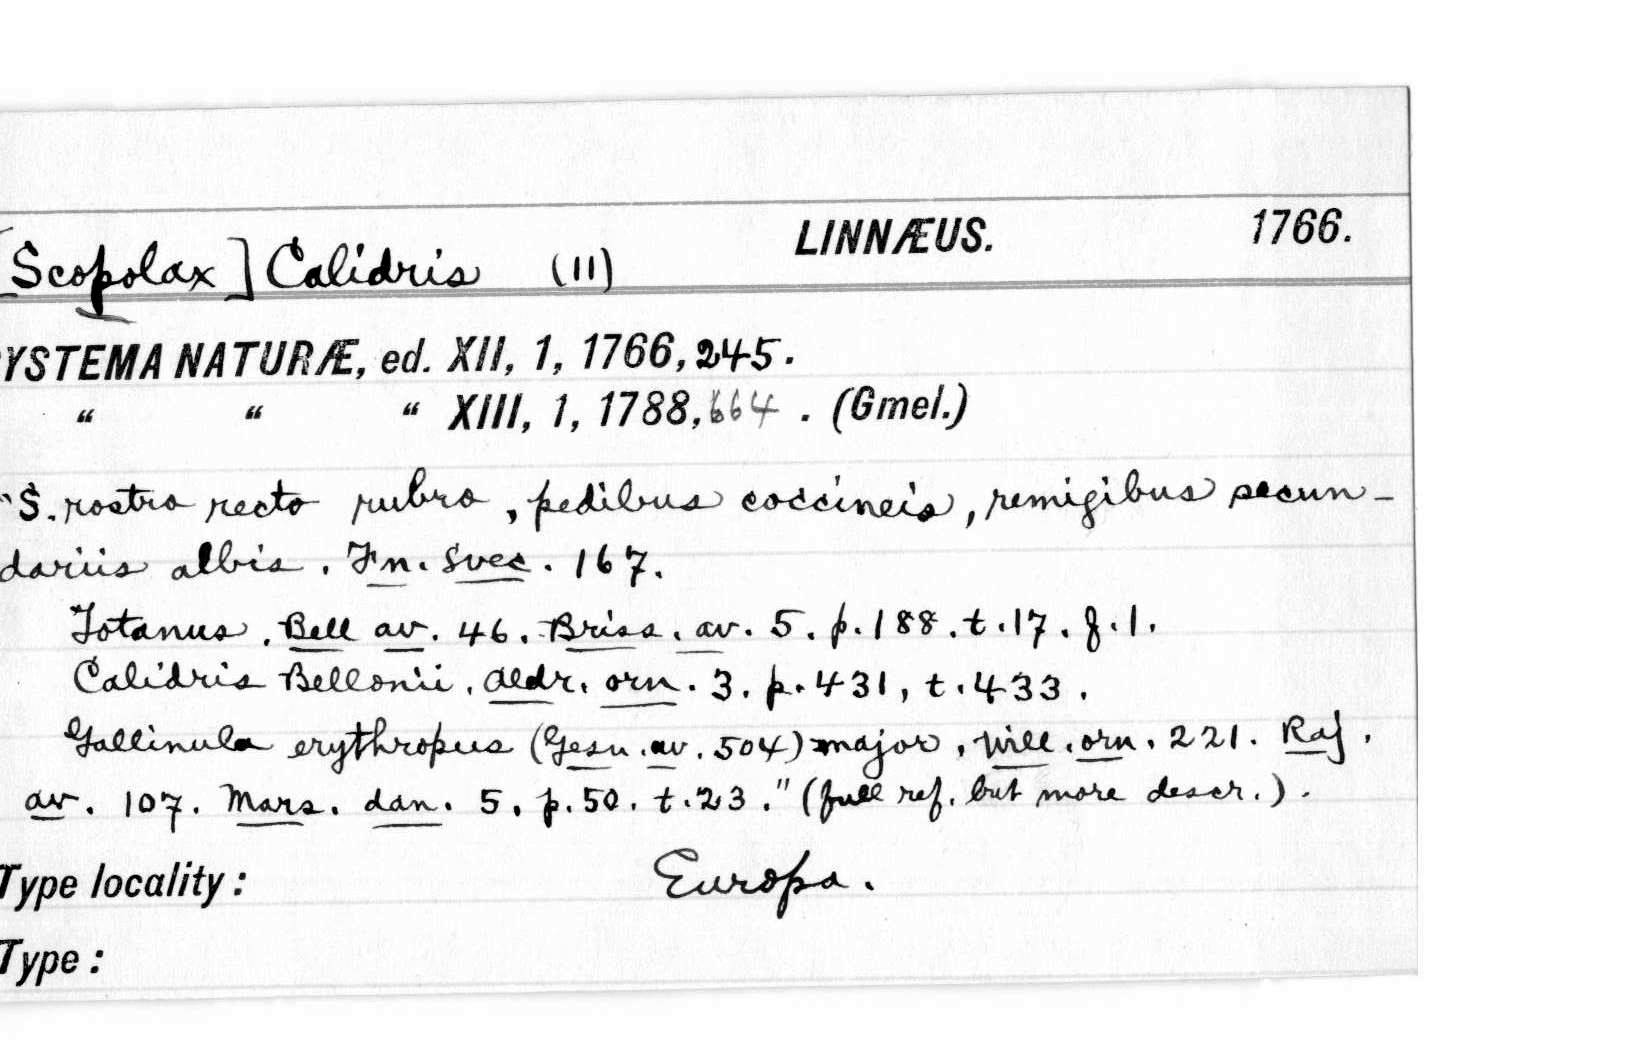 LINNÆUS. 1766.
[Scopolax] Calidris (11)
YSTEMA NATURÆ, ed. XII, 1, 1766, 245.
“ “ “ XIII, 1, 1788, 664 . (Gmel.)
"S. rostro recto rubro, pedibus coccineis, remigibus secun-
dariis albis. Fn. Svec. 167.
Totanus. Bell av. 46. Briss. av. 5. p. 188. t. 17. f. 1.
Calidris Bellonii. Aldr. orn. 3. p. 431, t. 433.
Gallinula erythropus (Gesn. av. 504) major, Will. orn. 221. Raj.
av. 107. Mars. dan. 5. p. 50. t. 23." (full ref. but more descr.).
Type locality: Europa.
Type: